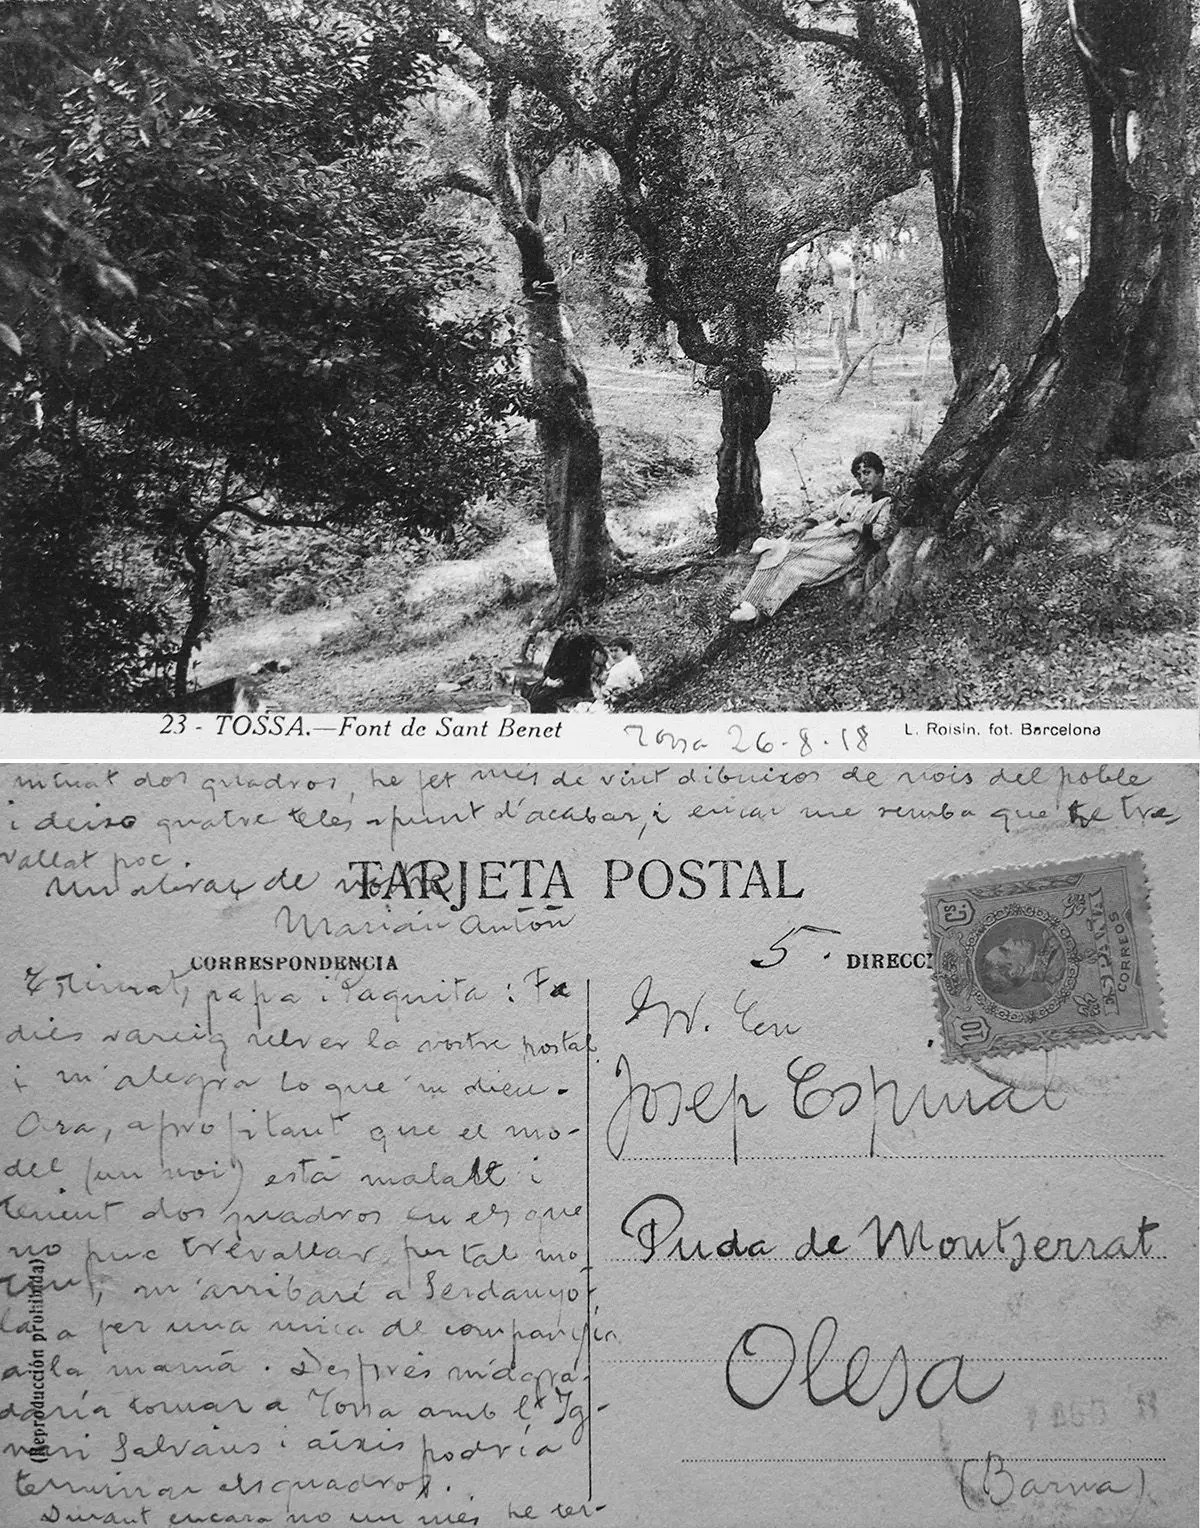 23 - TOSSA.—Font de Sant Benet
Tossa 26-8-18
L. Roisin, fot. Barcelona
minat dos quadros, he fet més de vint dibuixos de nois del poble
i deixo quatre teles apunt d'acabar, i encar me semba que he tre-
vallat poc.
Un abraç de
Marian Anton
TARJETA POSTAL
CORRESPONDENCIA
Estimat, papa i Paquita: Fa
dies vareig rebrer la vostre postal
i m'alegra lo que 'm dieu.
Ara, aprofitant que el mo-
del (un noi) està malalt i
tenint dos quadros en els que
no puc trevallar, per tal mo-
tiu, m'arribaré a Serdanyo-
la a fer una mica de companyia
a la mamà. Després m'agra-
daría tornar a Tossa amb l'Ig-
nasi Salvans i aixís podría
terminar els quadros.
Durant encara no un mes he ter-
(Reproducción prohibida)
5.
DIRECCI
Sr. En
Josep Espinal
Puda de Montserrat
Olesa
(Barna)
ESPAÑA
CORREOS
10
Cs